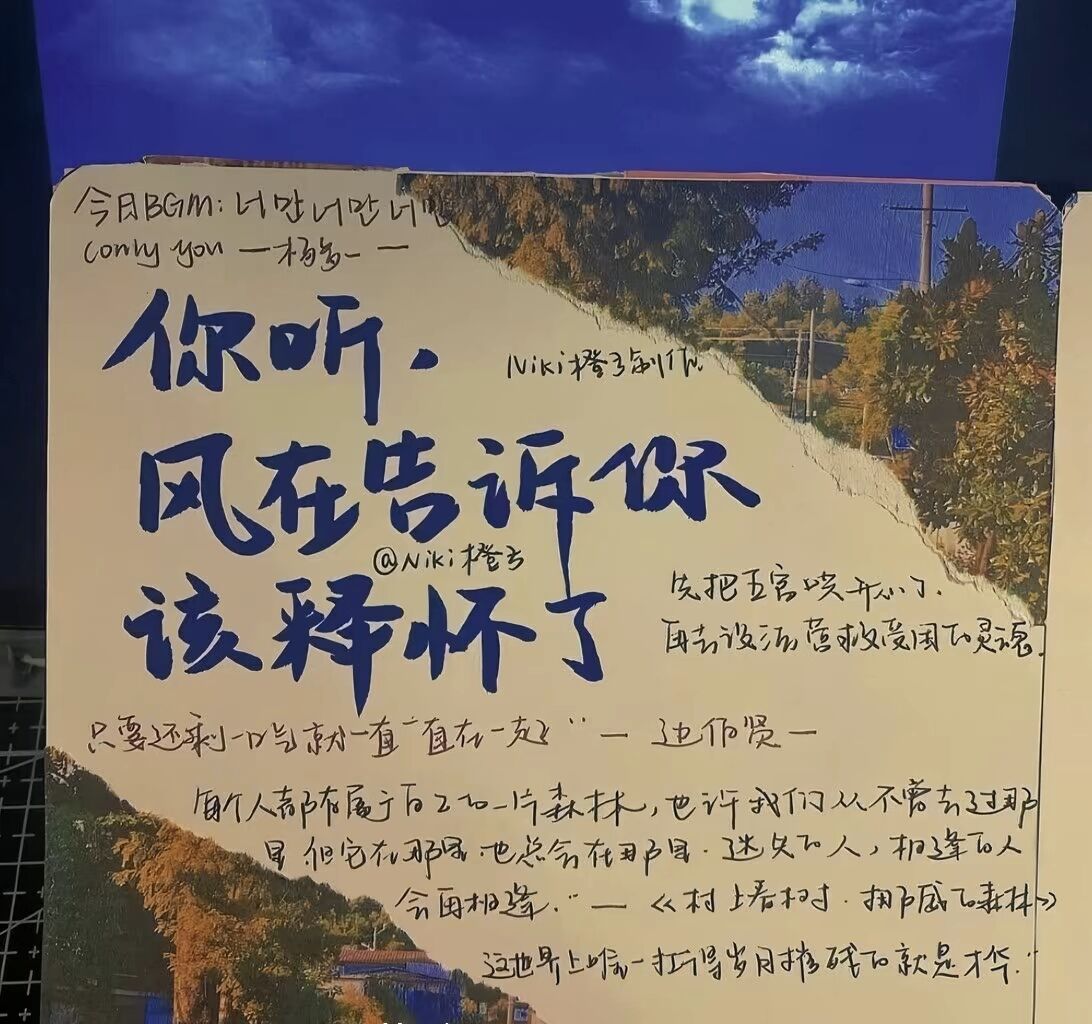 今日BGM:너만너만너만
(only you 一杨多一 一
你听,
Niki橙子制作
风在告诉你
@Niki橙子
该释怀了
先把五官哄开心了.
再去设法营救受困的灵魂.
只要还剩一口气就一直“直在一起” — 边伯贤 —
每个人都有属于自己的一片森林,也许我们从不曾去过那
里 但它在那里.也总会在那里.迷失的人,相逢的人
会再相逢.” — 《村上春树.挪威的森林》
这世界上唯一扛得岁月摧残的就是才华.”